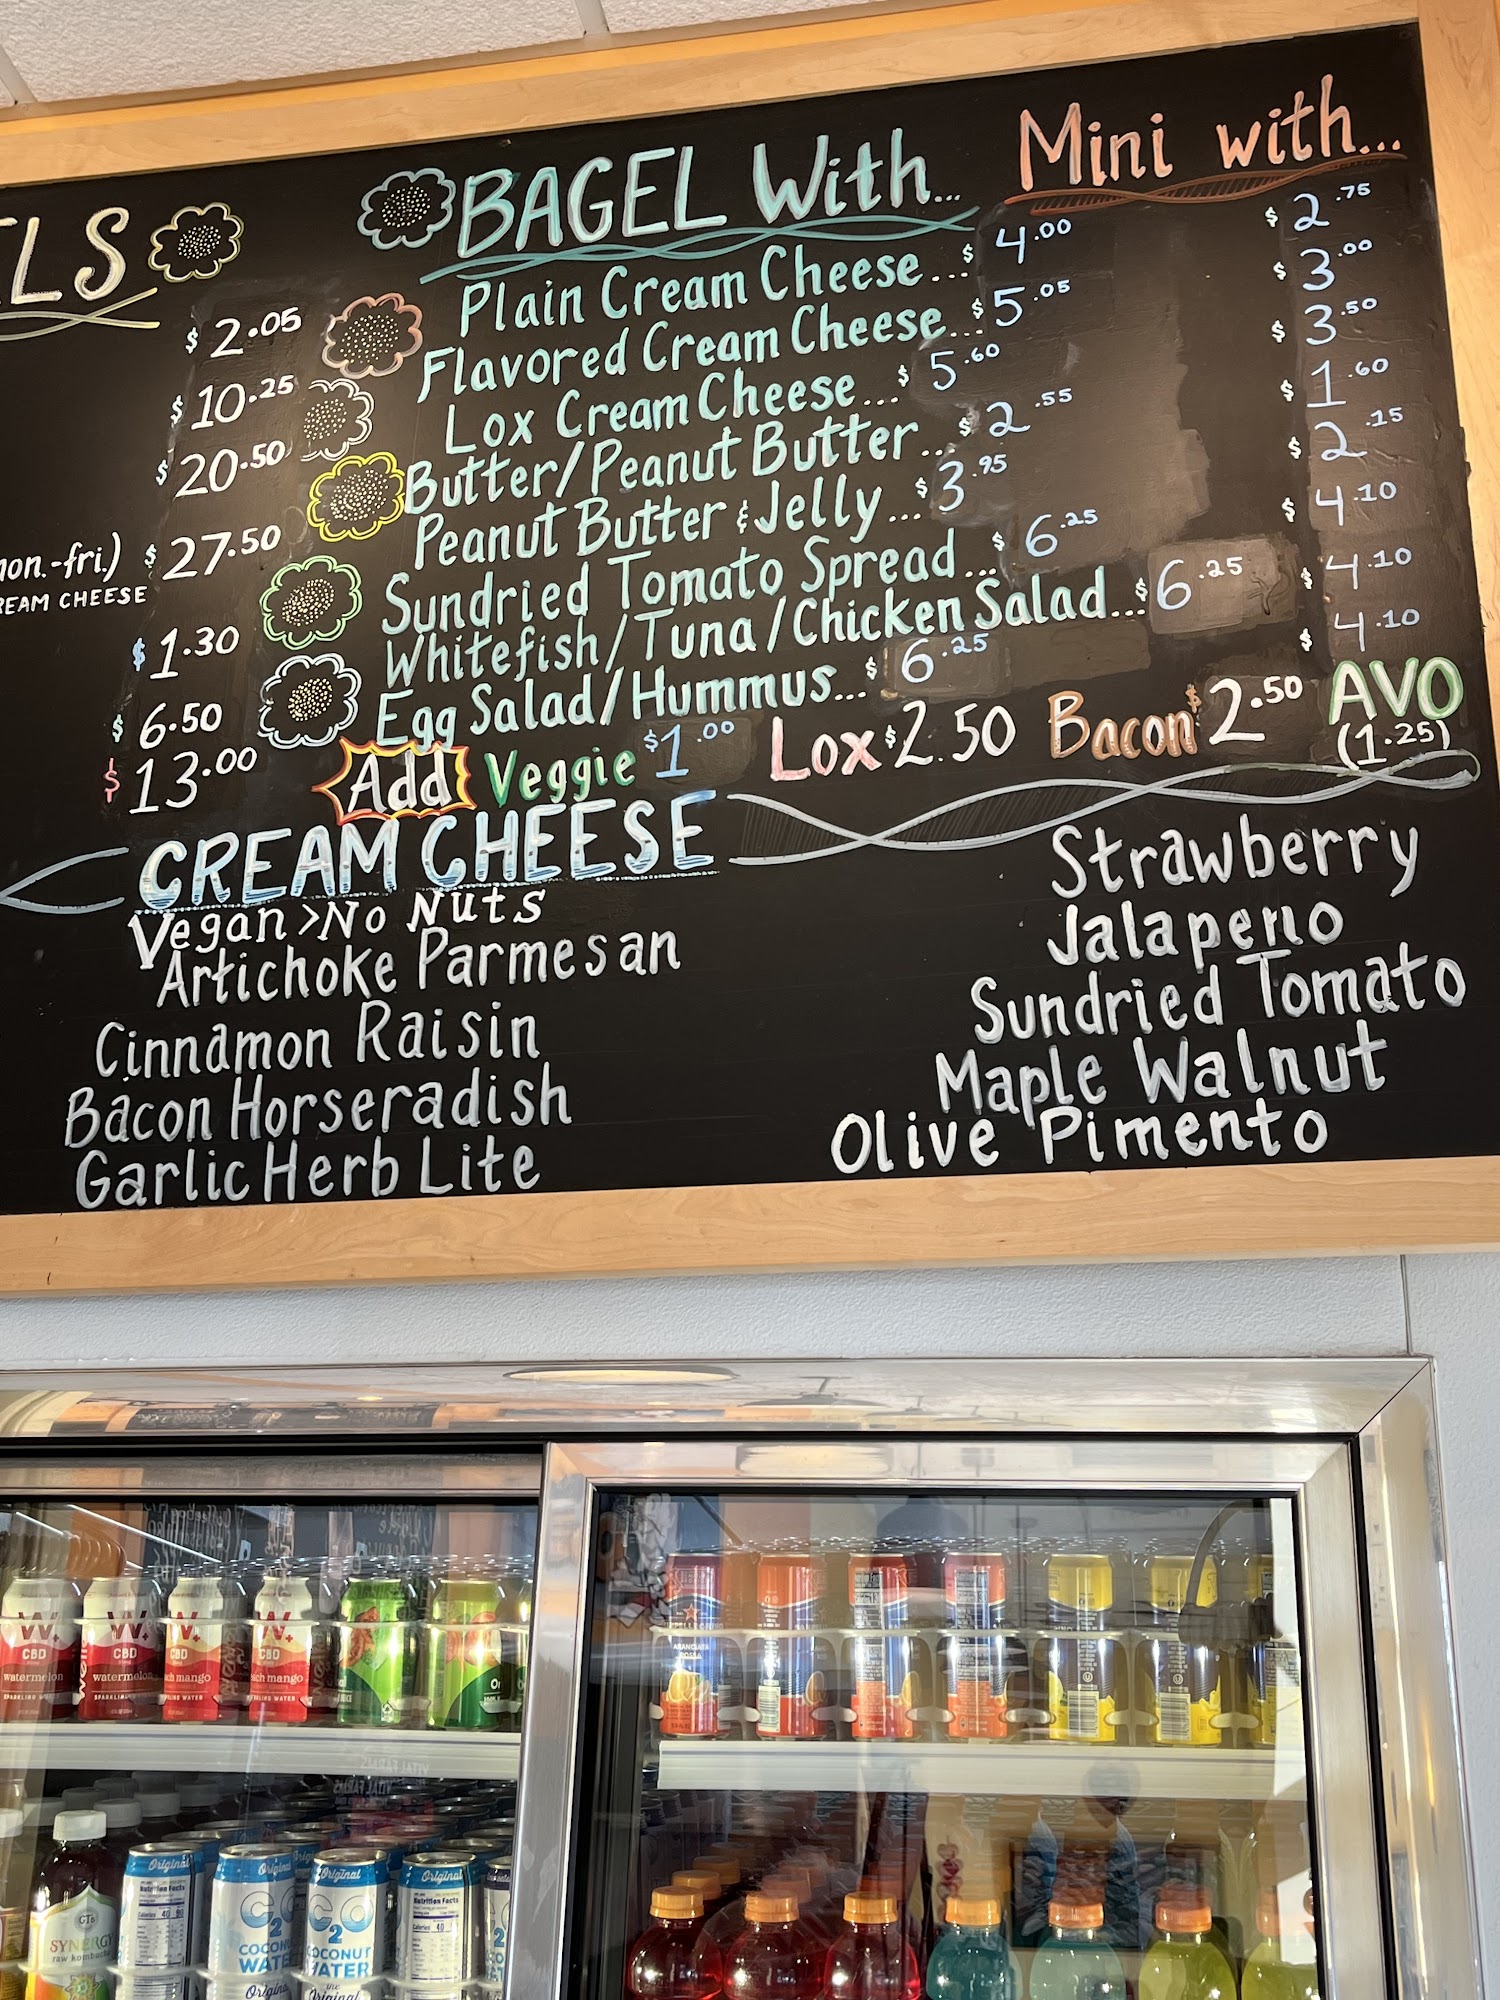 LS
$2.05
$10.25
$20.50
on.-fri.) $27.50
REAM CHEESE
$1.30
$6.50
$13.00
BAGEL With...
Mini with...
Plain Cream Cheese...$4.00 $2.75
Flavored Cream Cheese...$5.05 $3.00
Lox Cream Cheese...$5.60 $3.50
Butter/Peanut Butter...$2.55 $1.60
Peanut Butter & Jelly...$3.95 $2.15
Sundried Tomato Spread...$6.25 $4.10
Whitefish/Tuna/Chicken Salad...$6.25 $4.10
Egg Salad/Hummus...$6.25 $4.10
Add Veggie $1.00 Lox $2.50 Bacon $2.50 AVO (1.25)
CREAM CHEESE
Vegan>No Nuts
Artichoke Parmesan
Cinnamon Raisin
Bacon Horseradish
Garlic Herb Lite
Strawberry
Jalapeno
Sundried Tomato
Maple Walnut
Olive Pimento
CBD
watermelon
CBD
watermelon
CBD
ch mango
CBD
ach mango
ARANCIATA
ROSSA
GT's
SYNERGY
raw kombucha
Original
Nutrition Facts
Original
C2O
COCONUT
WATER
Original
Original
C2O
COCONUT
WATER
the
Original
Original
Nutrition Facts